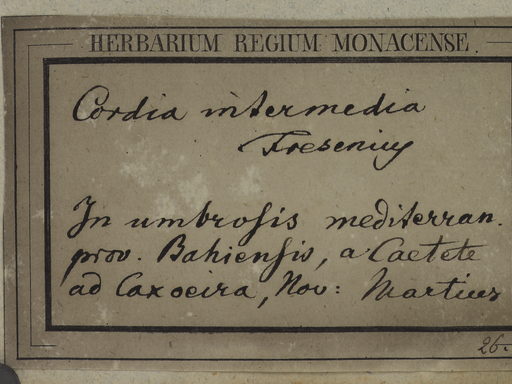 HERBARIUM REGIUM MONACENSE
Cordia intermedia
Fresenius
In umbrosis mediterran.
prov. Bahiensis, a Caetete
ad Caxoeira, Nov: Martius
26.